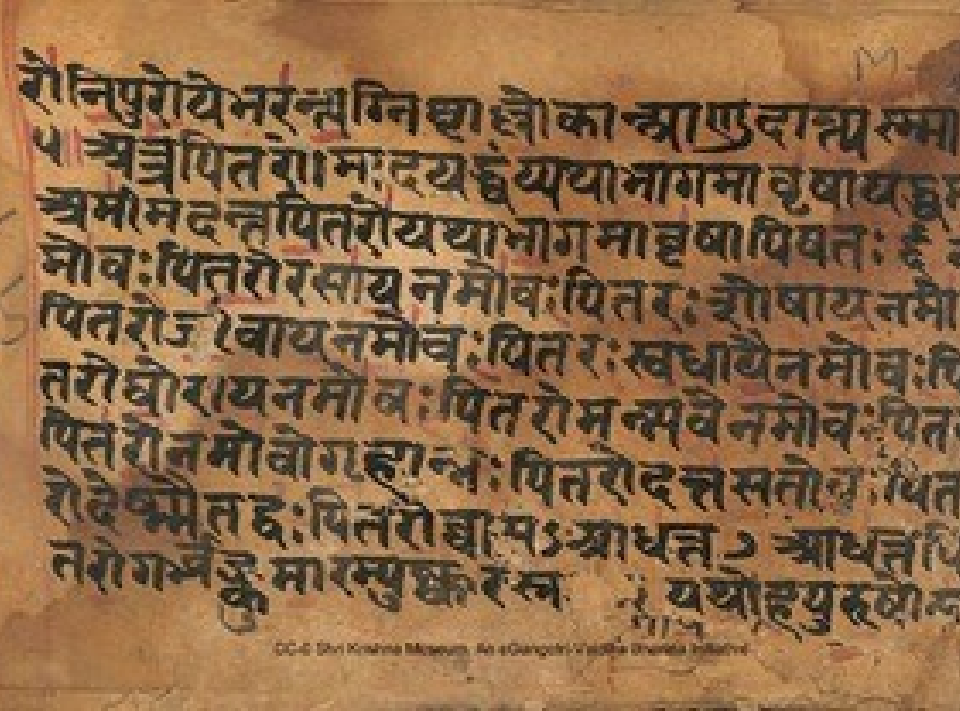 रो निपुरो ये भरन्त्यग्निष्टाँल्लोकान्प्राणुदात्यस्मा
५ अत्र पितरो मादयद्ध्वं य्यथाभागमावृषायद्ध्व
अमीमदन्त पितरो यथाभागमावृषायिषत
मो वः पितरो रसाय नमो वः पितरः शोषाय नमो
पितरो जीवाय नमो वः पितरः स्वधायै नमो वः पि
तरो घोराय नमो वः पितरो मन्यवे नमो वः पित
पितरो नमो वो गृहान्नः पितरो दत्त सतो वः पित
रो देष्मैतद्वः पितरो वासऽआधत्त आधत्त पि
तरो गर्भङ्कुमारम्पुष्करस्र यथेह पुरुषो
CC-0 Shri Krishna Museum. An eGangotri-Vaidika Bharata Initiative